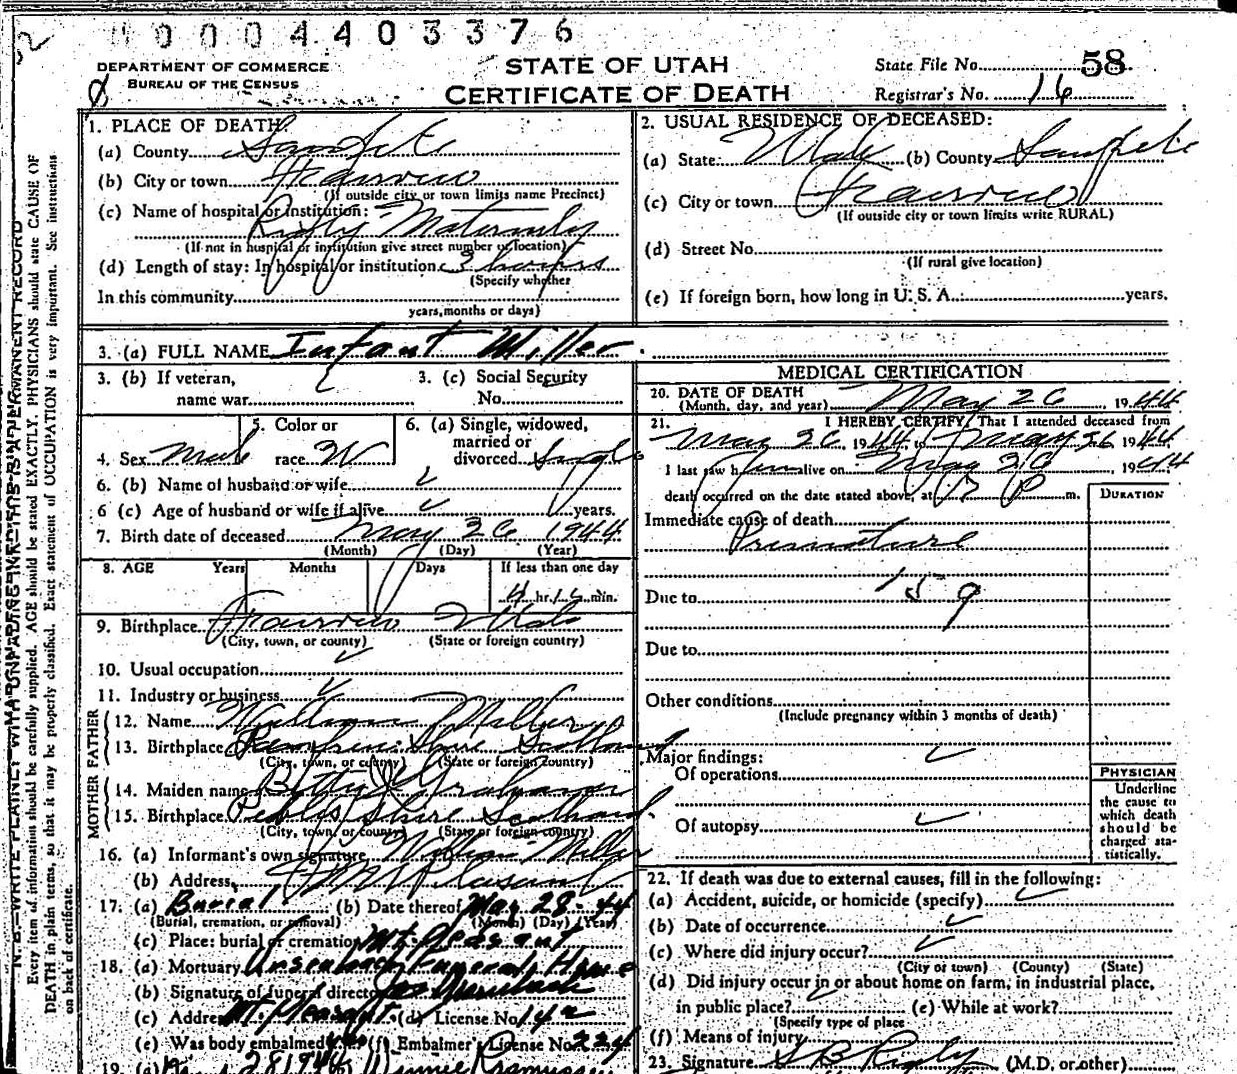 0004403376
DEPARTMENT OF COMMERCE
BUREAU OF THE CENSUS
STATE OF UTAH
CERTIFICATE OF DEATH
State File No. 58
Registrar's No. 16
N. B.—WRITE PLAINLY WITH UNFADING INK—THIS IS A PERMANENT RECORD
Every item of information should be carefully supplied. AGE should be stated EXACTLY. PHYSICIANS should state CAUSE OF
DEATH in plain terms, so that it may be properly classified. Exact statement of OCCUPATION is very important. See instructions
on back of certificate.
1. PLACE OF DEATH:
(a) County Sanpete
(b) City or town Fairview
(If outside city or town limits name Precinct)
(c) Name of hospital or institution:
Rigby Maternity
(If not in hospital or institution give street number or location)
(d) Length of stay: In hospital or institution 3 hours
(Specify whether
In this community
years, months or days)
2. USUAL RESIDENCE OF DECEASED:
(a) State Utah (b) County Sanpete
(c) City or town Fairview
(If outside city or town limits write RURAL)
(d) Street No.
(If rural give location)
(e) If foreign born, how long in U. S. A. years.
3. (a) FULL NAME Infant Miller
3. (b) If veteran, name war
3. (c) Social Security No.
4. Sex Male
5. Color or race W
6. (a) Single, widowed, married or divorced Single
6. (b) Name of husband or wife
6 (c) Age of husband or wife if alive years.
7. Birth date of deceased May 26 1944
(Month) (Day) (Year)
8. AGE Years Months Days If less than one day
hr. min.
9. Birthplace Fairview Utah
(City, town, or county) (State or foreign country)
10. Usual occupation
11. Industry or business
FATHER
12. Name William Miller
13. Birthplace Shire Scotland
(City, town, or county) (State or foreign country)
MOTHER
14. Maiden name Betty Grahamer
15. Birthplace Peebles Shire Scotland
(City, town, or county) (State or foreign country)
16. (a) Informant's own signature William Miller
(b) Address Mt Pleasant
17. (a) Burial (b) Date thereof May 28-44
(Burial, cremation, or removal) (Month) (Day) (Year)
(c) Place: burial or cremation Mt. Pleasant
18. (a) Mortuary Ursenbach Funeral Home
(b) Signature of funeral director Ursenbach
(c) Address Mt. Pleasant (d) License No. 142
(e) Was body embalmed (f) Embalmer's License No. 224
19. (a) 28 1944 Rasmussen
MEDICAL CERTIFICATION
20. DATE OF DEATH
(Month, day, and year) May 26, 1944
21. I HEREBY CERTIFY, That I attended deceased from
May 26 1944 to May 26 1944
I last saw him alive on May 26 1944
death occurred on the date stated above, at P m.
DURATION
Immediate cause of death
Premature
Due to 159
Due to
Other conditions
(Include pregnancy within 3 months of death)
Major findings:
Of operations
Of autopsy
PHYSICIAN
Underline
the cause to
which death
should be
charged sta-
tistically.
22. If death was due to external causes, fill in the following:
(a) Accident, suicide, or homicide (specify)
(b) Date of occurrence
(c) Where did injury occur?
(City or town) (County) (State)
(d) Did injury occur in or about home on farm, in industrial place,
in public place? (e) While at work?
(Specify type of place
(f) Means of injury
23. Signature S B Rigby (M.D. or other)